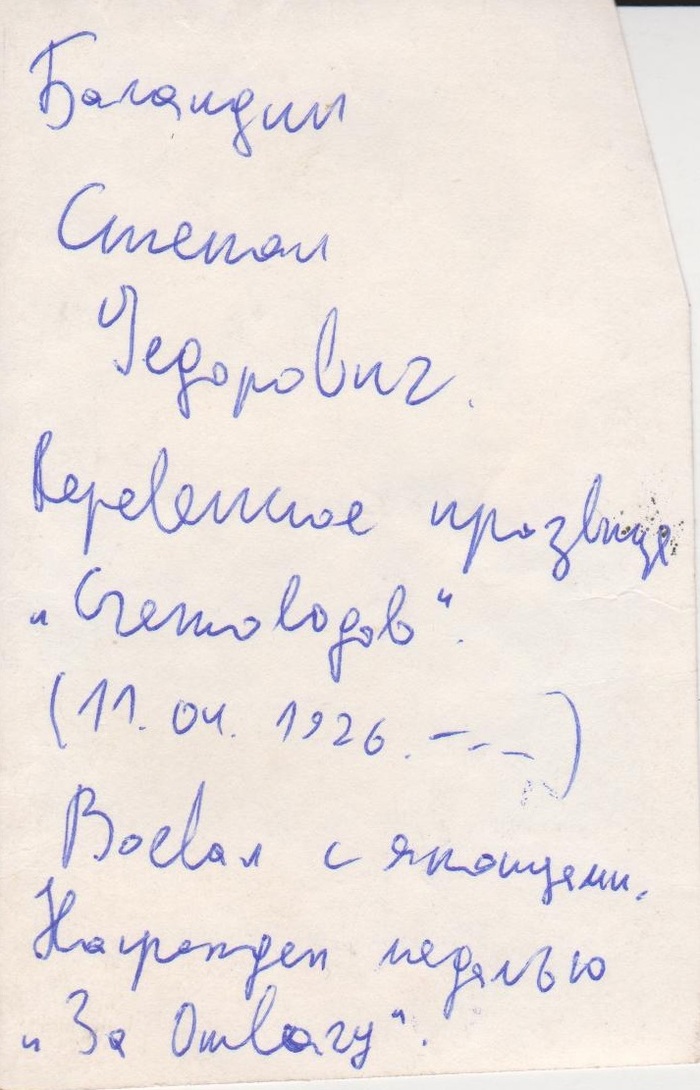 Баландин
Степан
Федорович.
Деревенское прозвище
„Счетоводов“.
(11.04.1926.----)
Воевал с японцами.
Награжден медалью
„За Отвагу“.